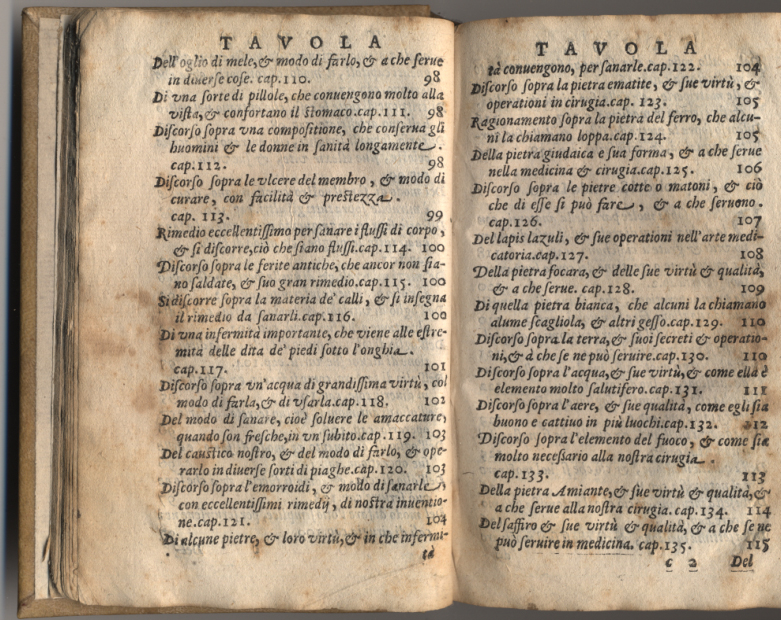 TAVOLA
Dell'oglio di mele, & modo di farlo, & a che serue
in diuerse cose. cap.110. 98
Di vna sorte di pillole, che conuengono molto alla
vista, & confortano il stomaco.cap.111. 98
Discorso sopra vna compositione, che conserua gli
huomini & le donne in sanità longamente.
cap.112. 98
Discorso sopra le vlcere del membro, & modo di
curare, con facilità & prestezza.
cap. 113. 99
Rimedio eccellentissimo per sanare i flussi di corpo,
& si discorre, ciò che siano flussi.cap.114. 100
Discorso sopra le ferite antiche, che ancor non sia-
no saldate, & suo gran rimedio.cap.115. 100
Si discorre sopra la materia de' calli, & si insegna
il rimedio da sanarli.cap.116. 100
Di vna infermità importante, che viene alle estre-
mità delle dita de' piedi sotto l'onghia.
cap.117. 101
Discorso sopra vn'acqua di grandissima virtù, col
modo di farla, & di vsarla.cap.118. 102
Del modo di sanare, cioè soluere le amaccature,
quando son fresche, in vn subito.cap.119. 103
Del caustico nostro, & del modo di farlo, & ope-
rarlo in diuerse sorti di piaghe.cap.120. 103
Discorso sopra l'emorroidi, & modo di sanarle
con eccellentissimi rimedij, di nostra inuentio-
ne.cap.121. 104
Di alcune pietre, & loro virtù, & in che infermi-
tà
TAVOLA
tà conuengono, per sanarle.cap.122. 104
Discorso sopra la pietra ematite, & sue virtù, &
operationi in cirugia.cap. 123. 105
Ragionamento sopra la pietra del ferro, che alcu-
ni la chiamano loppa.cap.124. 105
Della pietra giudaica e sua forma, & a che serue
nella medicina & cirugia.cap.125. 106
Discorso sopra le pietre cotte o matoni, & ciò
che di esse si può fare, & a che seruono.
cap.126. 107
Del lapis lazuli, & sue operationi nell'arte medi-
catoria.cap.127. 108
Della pietra focara, & delle sue virtù & qualità,
& a che serue. cap.128. 109
Di quella pietra bianca, che alcuni la chiamano
alume scagliola, & altri gesso.cap.129. 110
Discorso sopra la terra, & suoi secreti & operatio-
ni, & à che se ne può seruire.cap.130. 110
Discorso sopra l'acqua, & sue virtù, & come ella è
elemento molto salutifero.cap.131. 111
Discorso sopra l'aere, & sue qualità, come egli sia
buono e cattiuo in più luochi.cap.132. 112
Discorso sopra l'elemento del fuoco, & come sia
molto necessario alla nostra cirugia.
cap.133. 113
Della pietra Amiante, & sue virtù & qualità, &
a che serue alla nostra cirugia.cap.134. 114
Del saffiro & sue virtù & qualità, & a che se ne
può seruire in medicina. cap.135. 115
c 2 Del